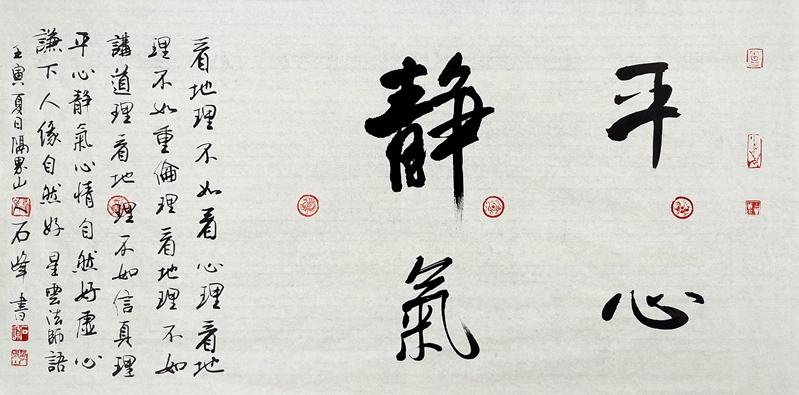 平心
靜氣
看地理不如看心理看地
理不如重倫理看地理不如
講道理看地理不如信真理
平心靜氣心情自然好虛心
謙下人緣自然好星雲法師語
壬寅夏日隔界山人石峰書